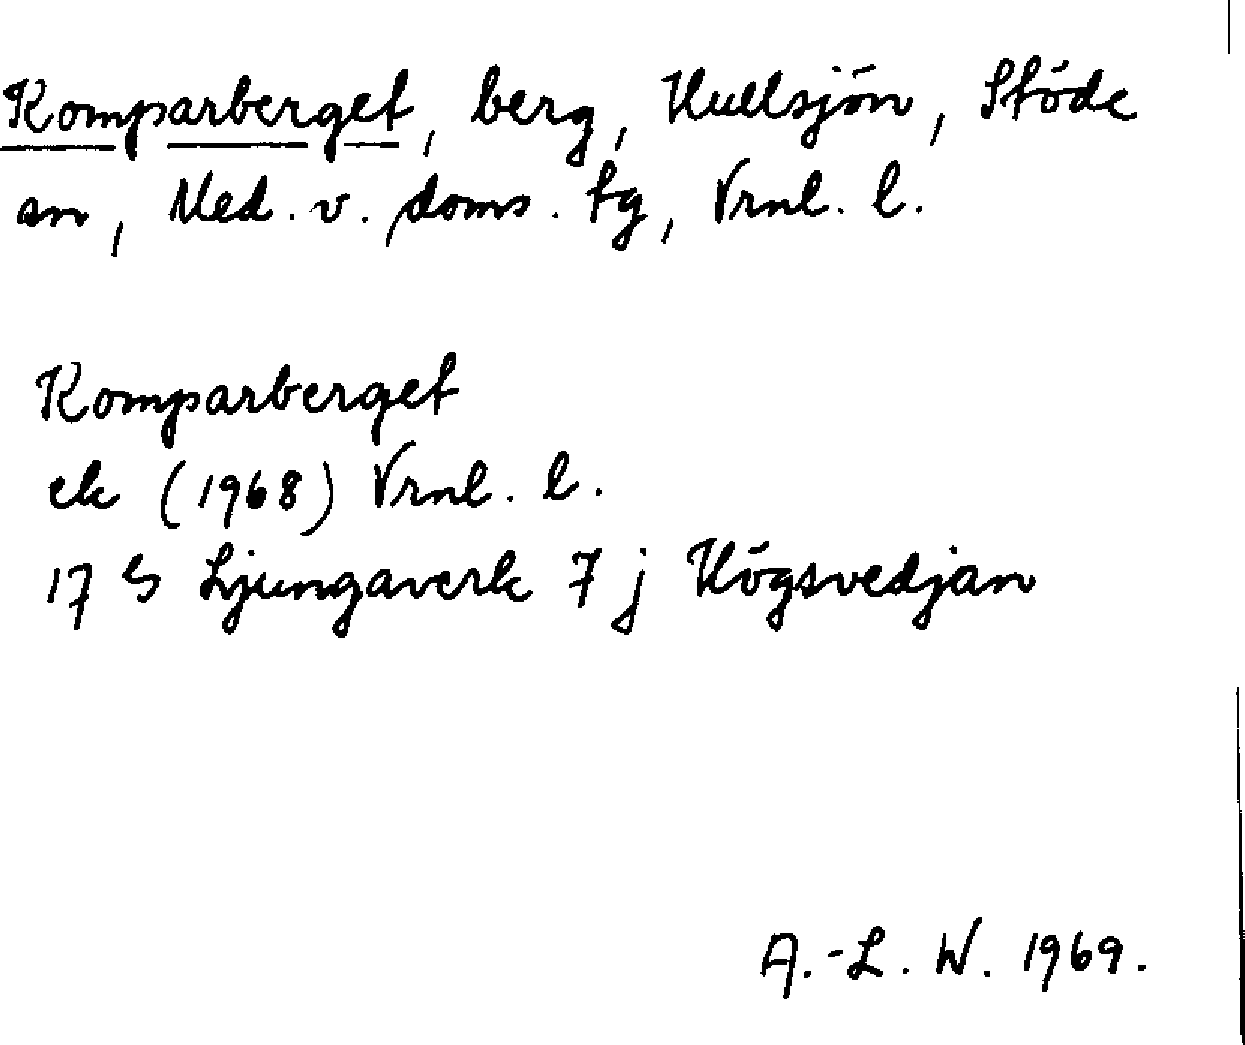 Komparberget, berg, Hullsjön, Stöde
sn, Med. v. doms. tg, Vrnl. l.
Komparberget
ek (1968) Vrnl. l.
17 G Ljungaverk 7 j Högsvedjan
A.-L. W. 1969.